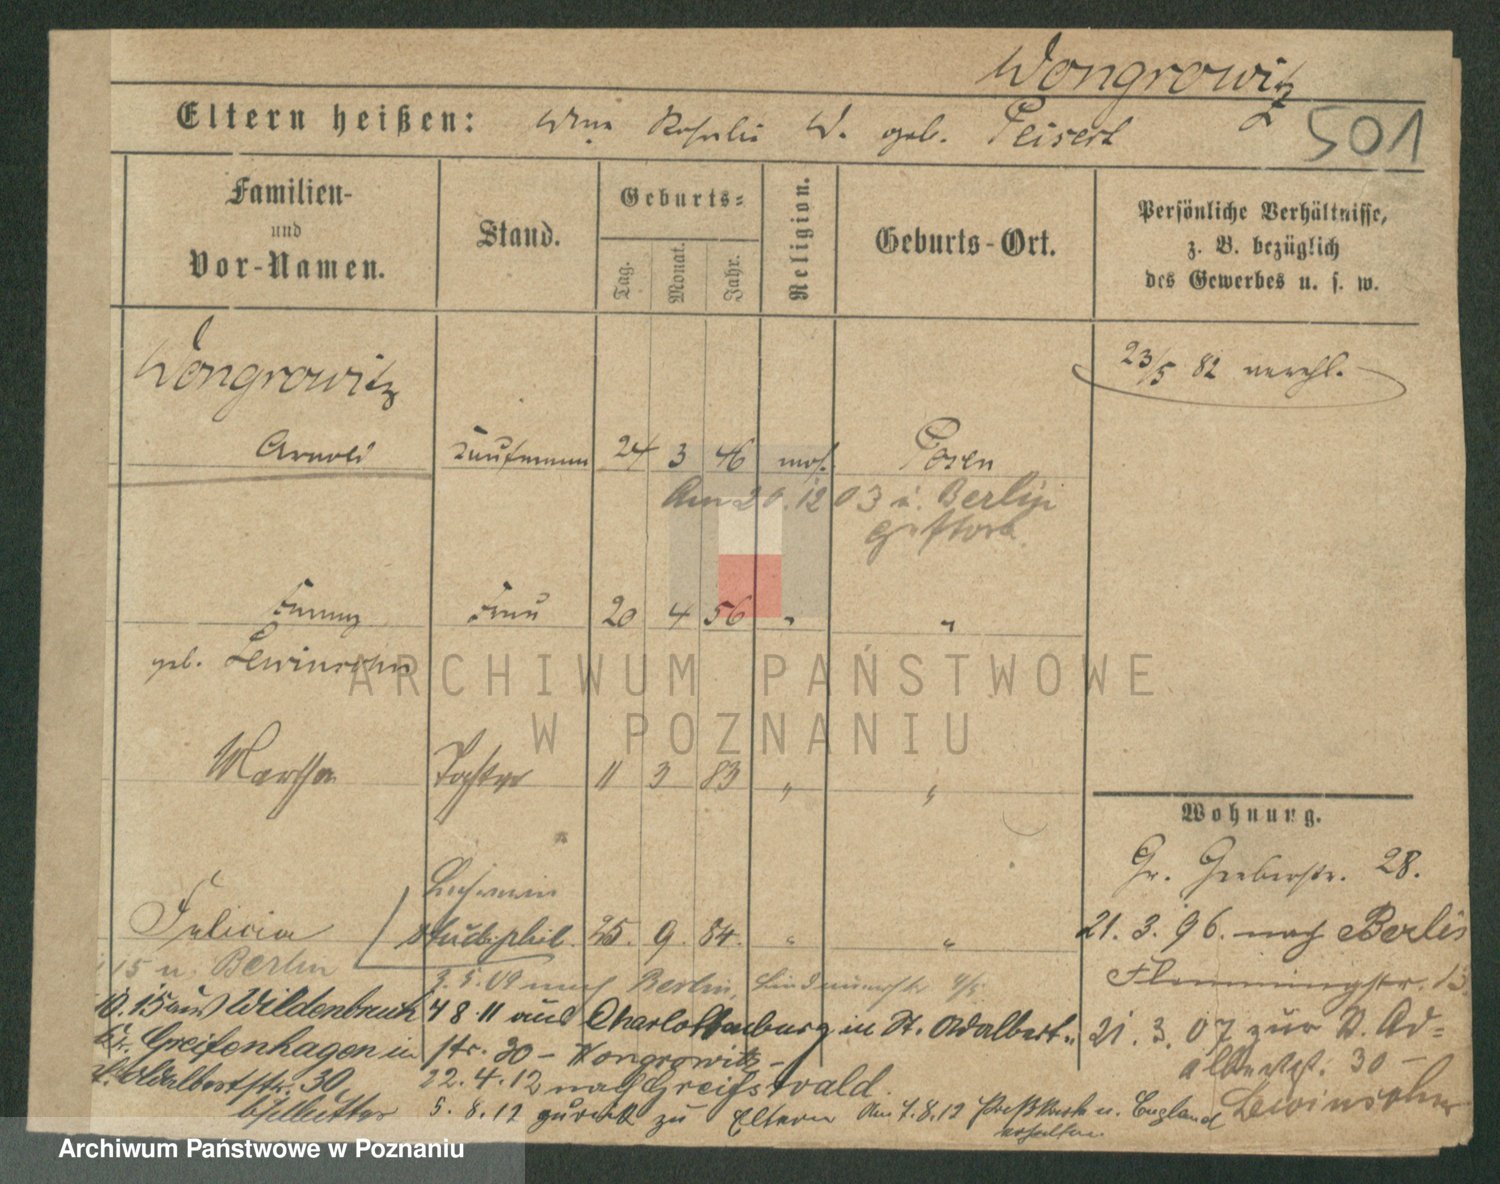 Wongrowitz
Eltern heißen: Wwe Rosalie W. geb. Peisert
501
Familien-
und
Vor-Namen.
Stand.
Geburts-
Tag.
Monat.
Jahr.
Religion.
Geburts-Ort.
Persönliche Verhältnisse,
z. B. bezüglich
des Gewerbes u. s. w.
Wongrowitz
23/5 82 verehl.
Arnold Kaufmann 24 3 46 mos. Posen
Am 20.12 03 i. Berlin
gestorb.
Fanny Frau 20 4 56 " "
geb. Lewinsohn
Martha Tochter 11 3 83 " "
Wohnung.
Gr. Gerberstr. 28.
Felicia stud. phil. 25. 9. 84. " "
21. 3. 96. nach Berlin
Flemmingstr. 13.
15 n. Berlin
3. 5. 09 nach Berlin,
10. 15 aus Wildenbruch
Kr. Greifenhagen in
St. Adalbertstr. 30
4 8 11 aus Charlottenburg in St. Adalbert-
str. 30 - Wongrowitz -
22. 4. 12 nach Greifswald.
5. 8. 12 zurück zu Eltern
Am 7.8.12 u. England
erhalten.
21. 3. 07 zur St. Ad-
albertst. 30 -
Lewinsohn
ARCHIWUM PAŃSTWOWE
W POZNANIU
Archiwum Państwowe w Poznaniu